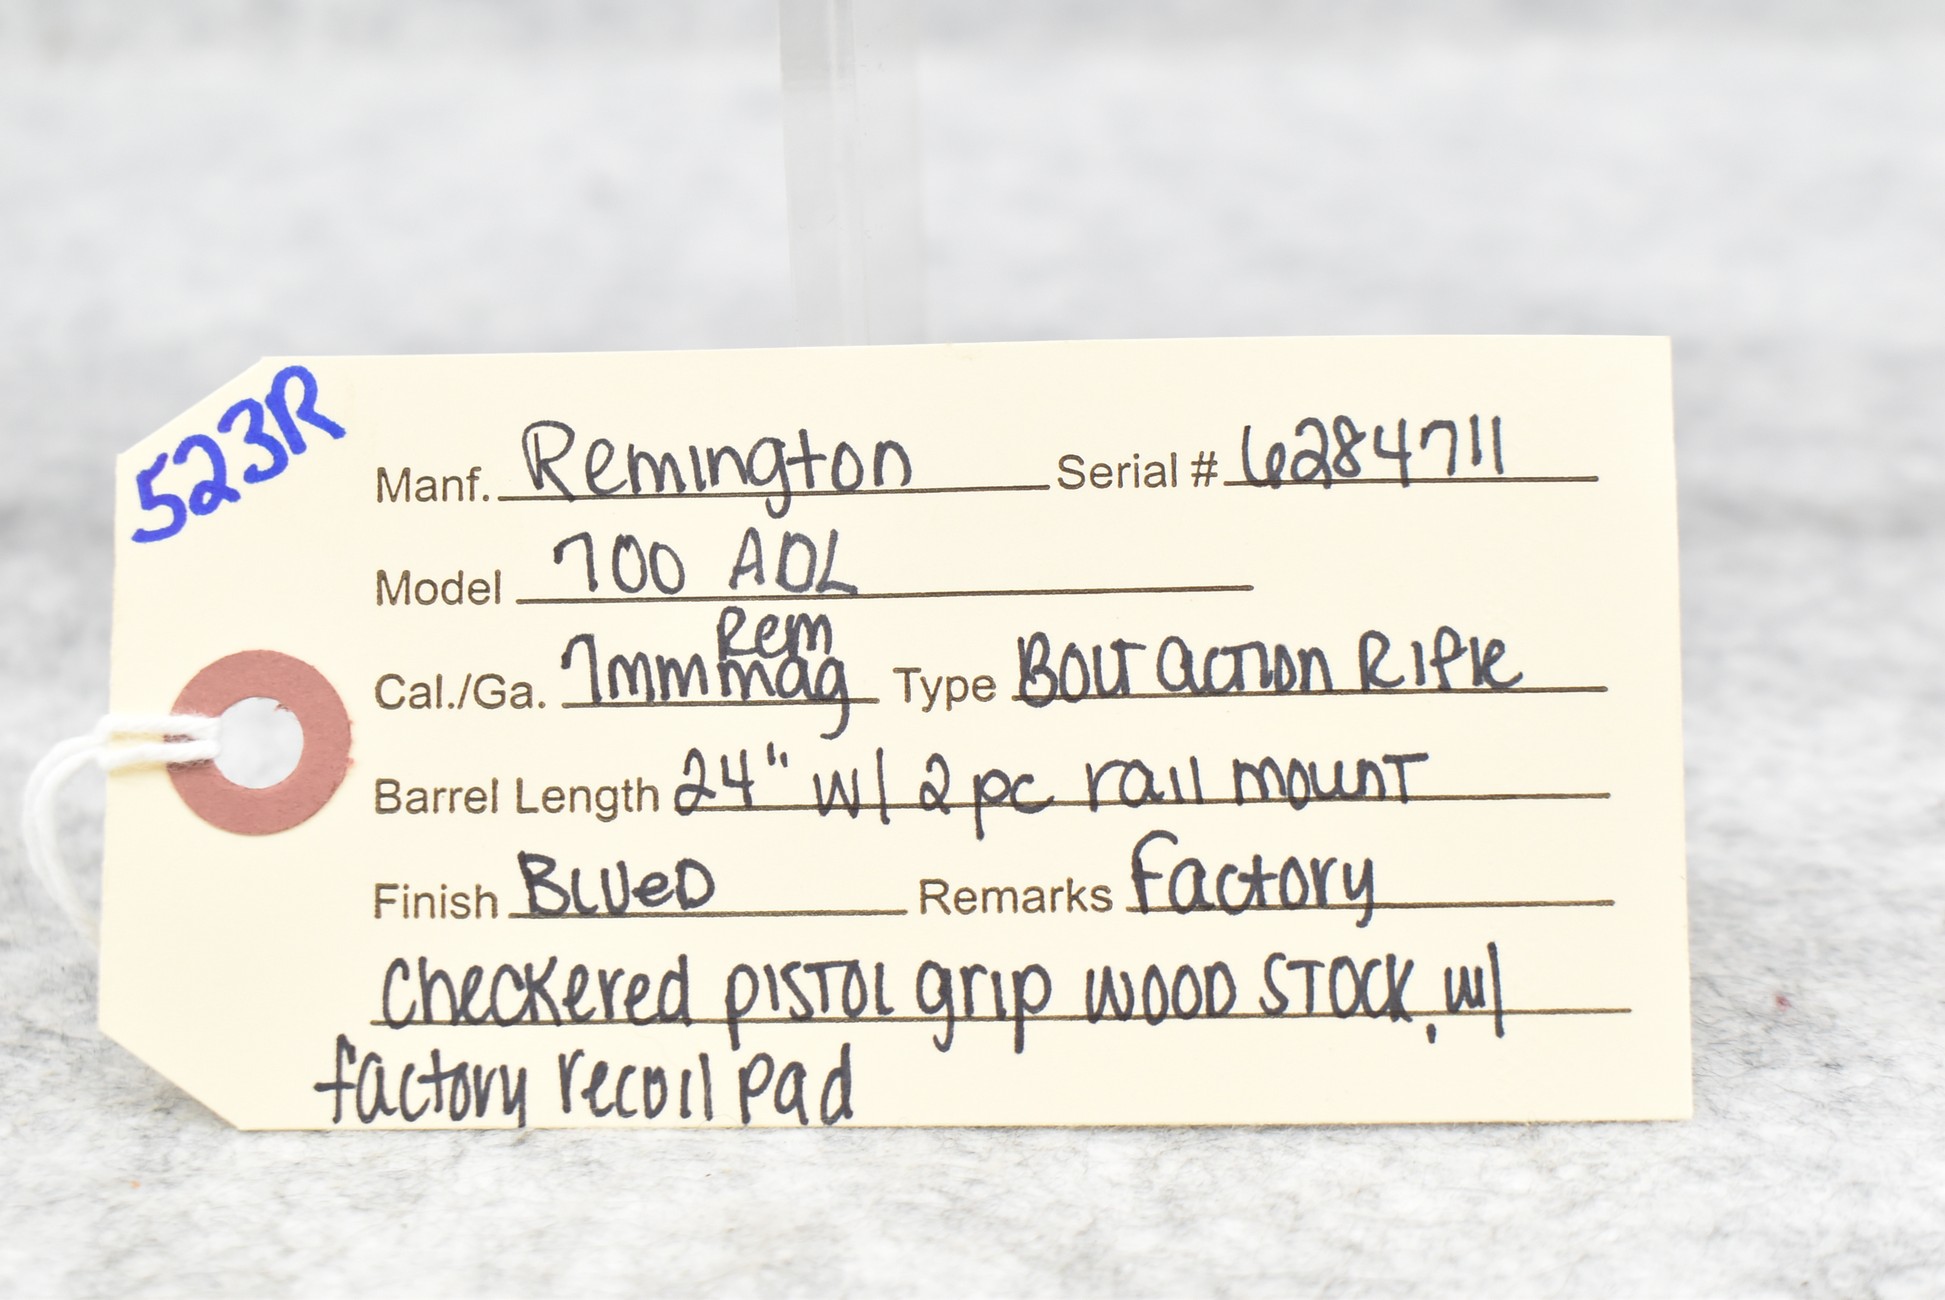 523R
Manf. Remington Serial # 6284711
Model 700 ADL
Rem
Cal./Ga. 7mm mag Type Bolt action Rifle
Barrel Length 24" w/ 2 pc rail mount
Finish BLUeD Remarks factory
checkered pistol grip wood stock, w/
factory recoil pad